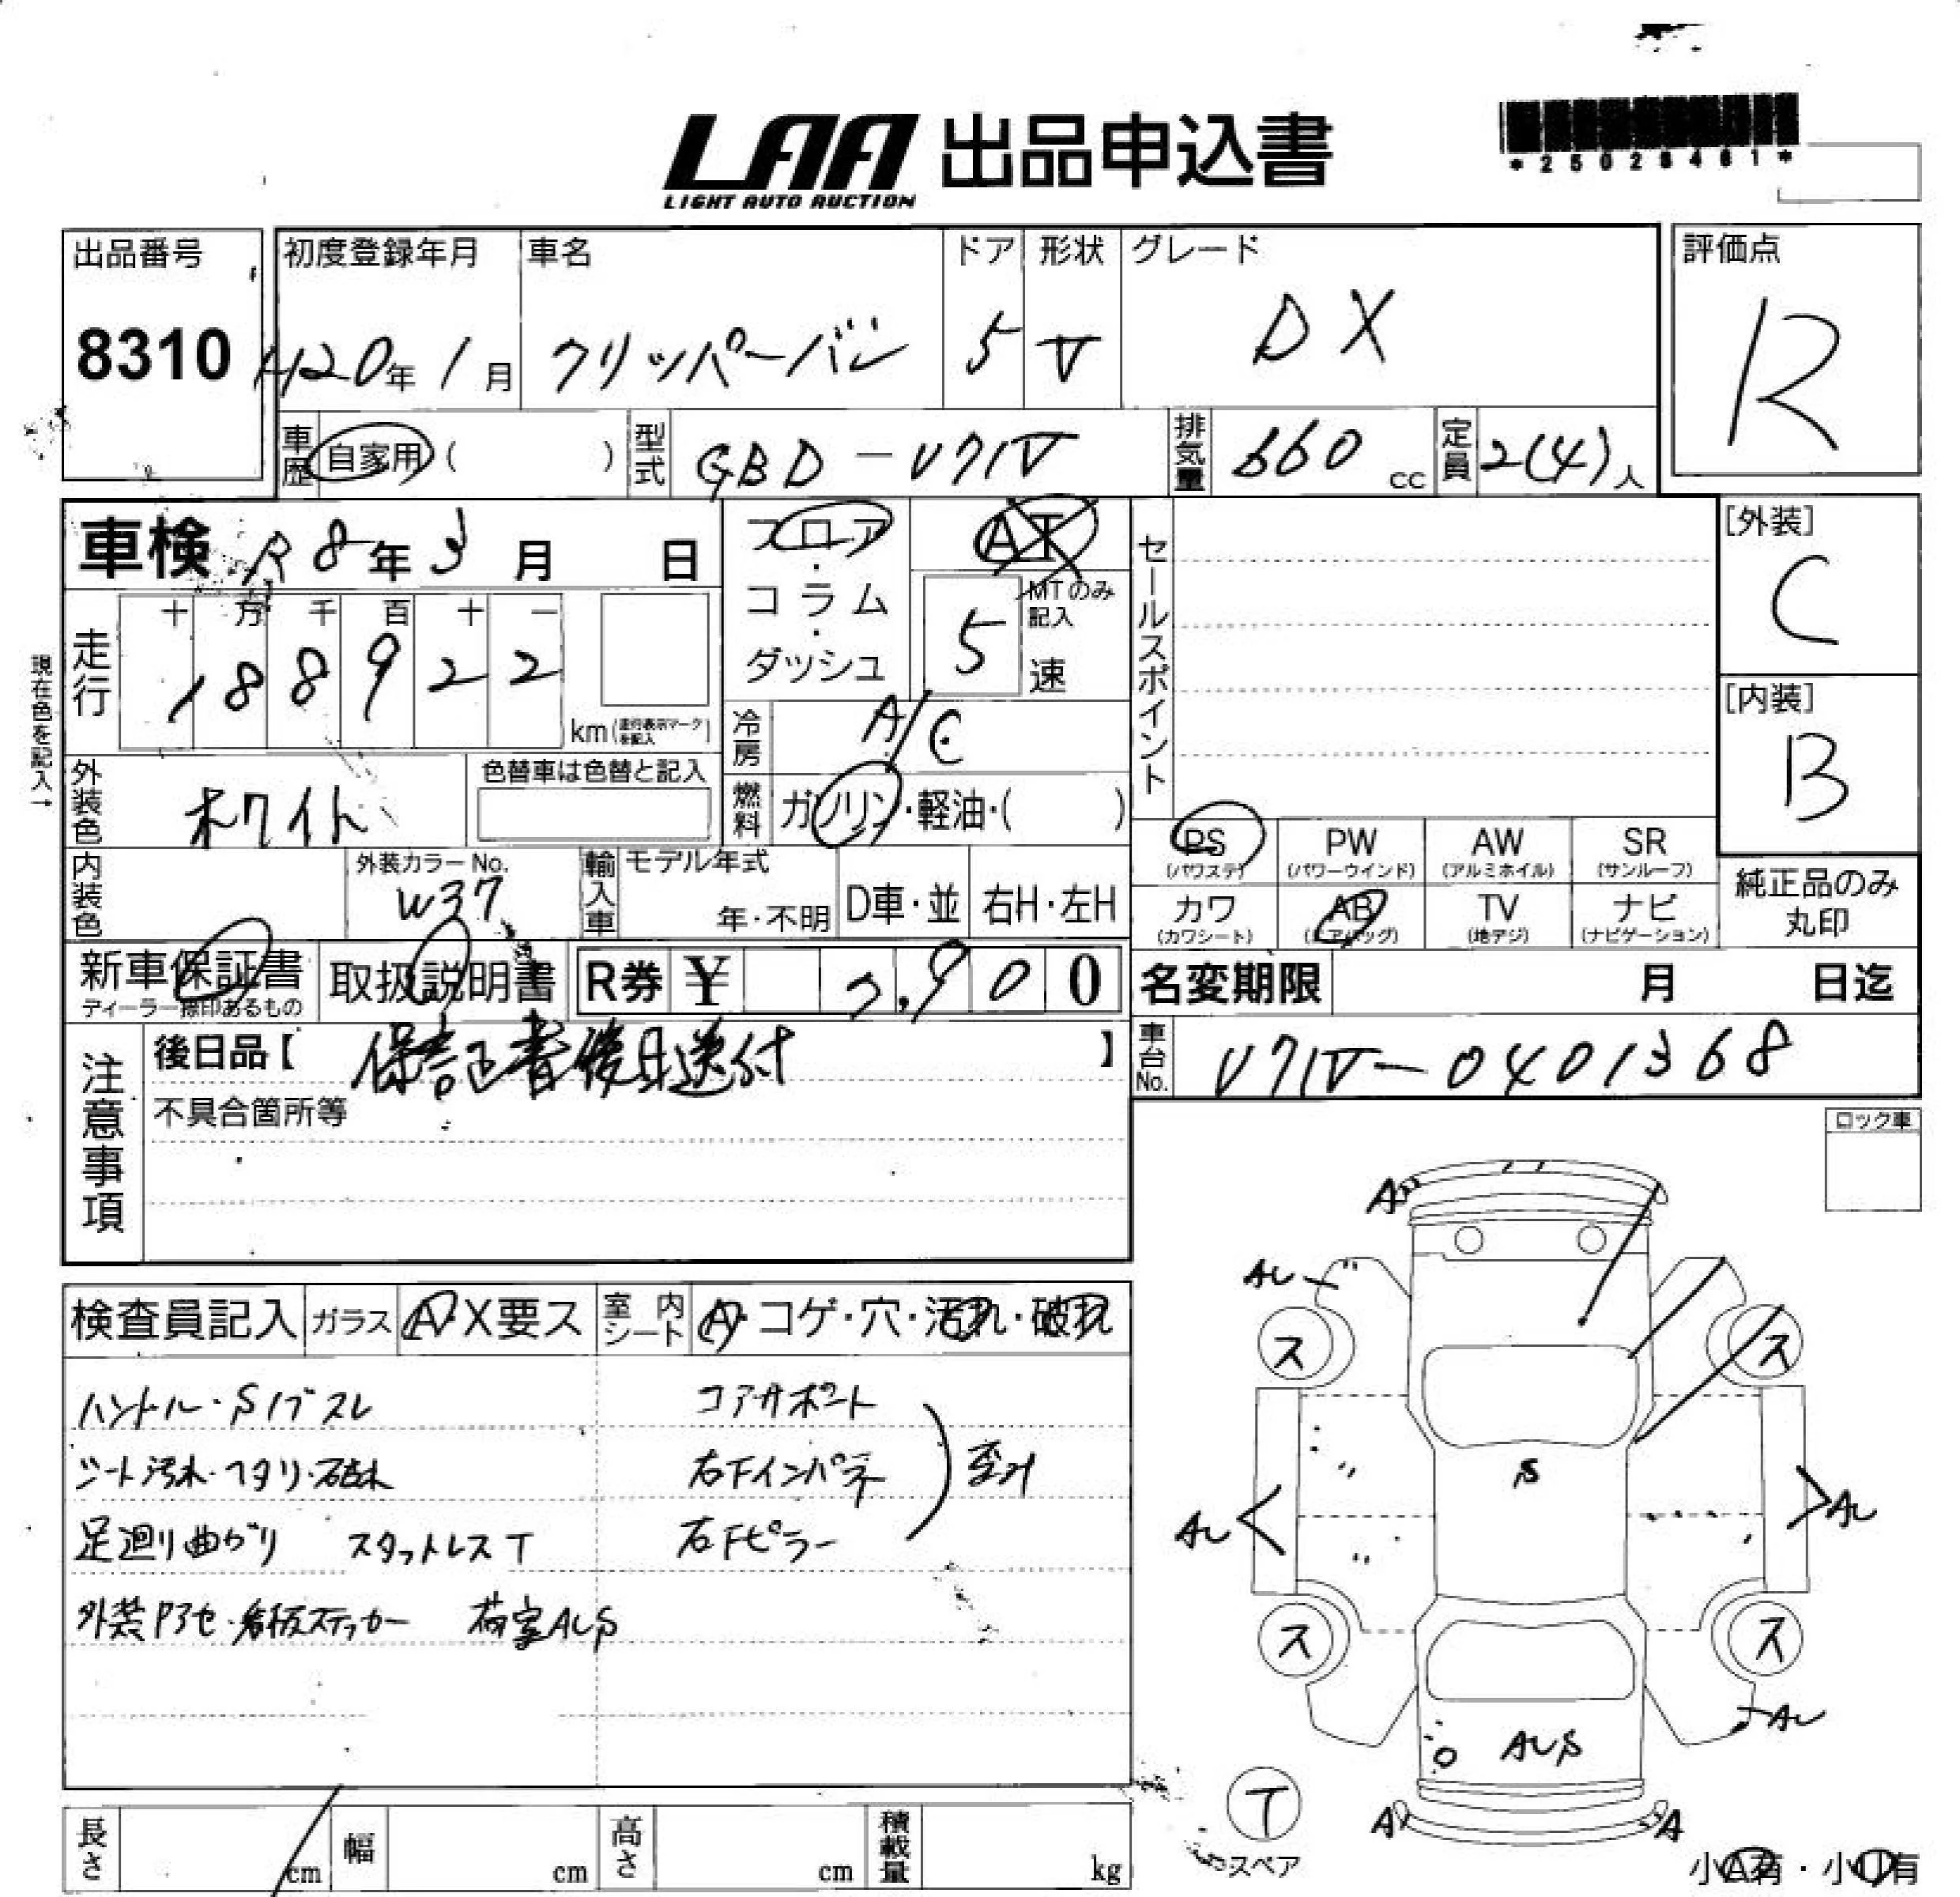 LAA 出品申込書
LIGHT AUTO AUCTION
*25028461*
出品番号
8310
初度登録年月
H20年1月
車名
クリッパーバン
ドア
5
形状
V
グレード
DX
評価点
R
車歴
自家用( )
型式
GBD-U71V
排気量
660 cc
定員
2(4)人
車検 R8年3月 日
フロア・コラム・ダッシュ
AT
MTのみ記入
5速
セールスポイント
[外装]
C
[内装]
B
走行
十 万 千 百 十 一
188922
km(走行表示マークを記入)
現在色を記入→
冷房
A/C
外装色
ホワイト
色替車は色替と記入
燃料
ガソリン・軽油・( )
PS
(パワステ)
PW
(パワーウインド)
AW
(アルミホイル)
SR
(サンルーフ)
カワ
(カワシート)
AB
(エアバッグ)
TV
(地デジ)
ナビ
(ナビゲーション)
純正品のみ丸印
内装色
外装カラーNo.
W37
輸入車
モデル年式
年・不明
D車・並
右H・左H
新車保証書
ディーラー捺印あるもの
取扱説明書
R券 ¥ 3,900
名変期限 月 日迄
注意事項
後日品【 保証書後日送付 】
車台No.
U71V-0401368
不具合箇所等
ロック車
検査員記入
ガラス
A・X要ス
室内シート
A・コゲ・穴・汚れ・破れ
ハンドル・Sノブスレ
コアサポート
シート汚れ・ヘタリ・破れ
右Fインパネ
歪み
足廻り曲がり スタットレスT
右Fピラー
外装Pヌセ・看板ステッカー 荷室AUS
A
AU
ス
ス
S
AU
AU
ス
ス
AU
AUS
T
スペア
A
A
小A有・小U有
長さ cm
幅 cm
高さ cm
積載量 kg